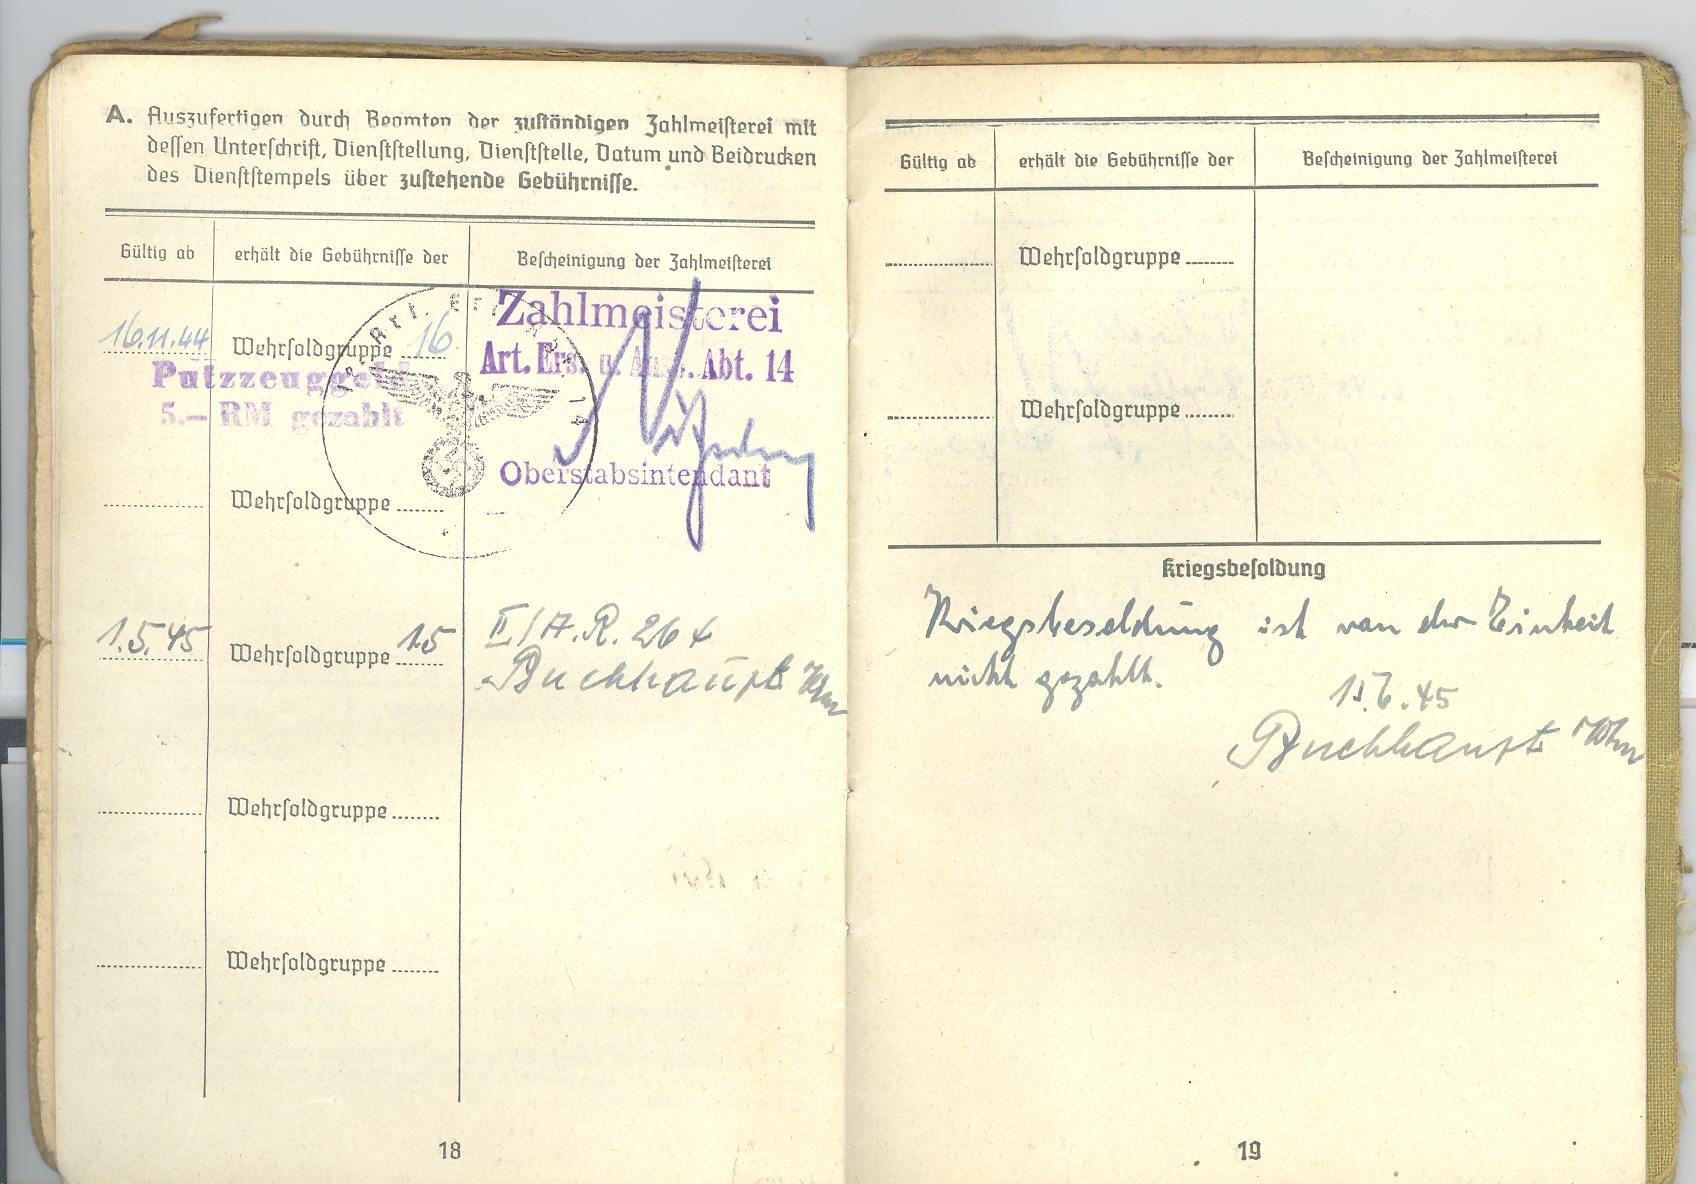 A. Auszufertigen durch Beamten der zuständigen Zahlmeisterei mit
dessen Unterschrift, Dienststellung, Dienststelle, Datum und Beidrucken
des Dienststempels über zustehende Gebührnisse.
Gültig ab erhält die Gebührnisse der Bescheinigung der Zahlmeisterei
16.11.44 Wehrsoldgruppe 16
Putzzeuggeld
5.– RM gezahlt
Zahlmeisterei
Art. Ers. u. Ausb. Abt. 14
Oberstabsintendant
Wehrsoldgruppe
1.5.45 Wehrsoldgruppe 15
II/A.R. 264
Buchhaupt
Wehrsoldgruppe
Wehrsoldgruppe
18
Gültig ab erhält die Gebührnisse der Bescheinigung der Zahlmeisterei
Wehrsoldgruppe
Wehrsoldgruppe
Kriegsbesoldung
Kriegsbesoldung ist von der Einheit
nicht gezahlt.
Buchhaupt
19